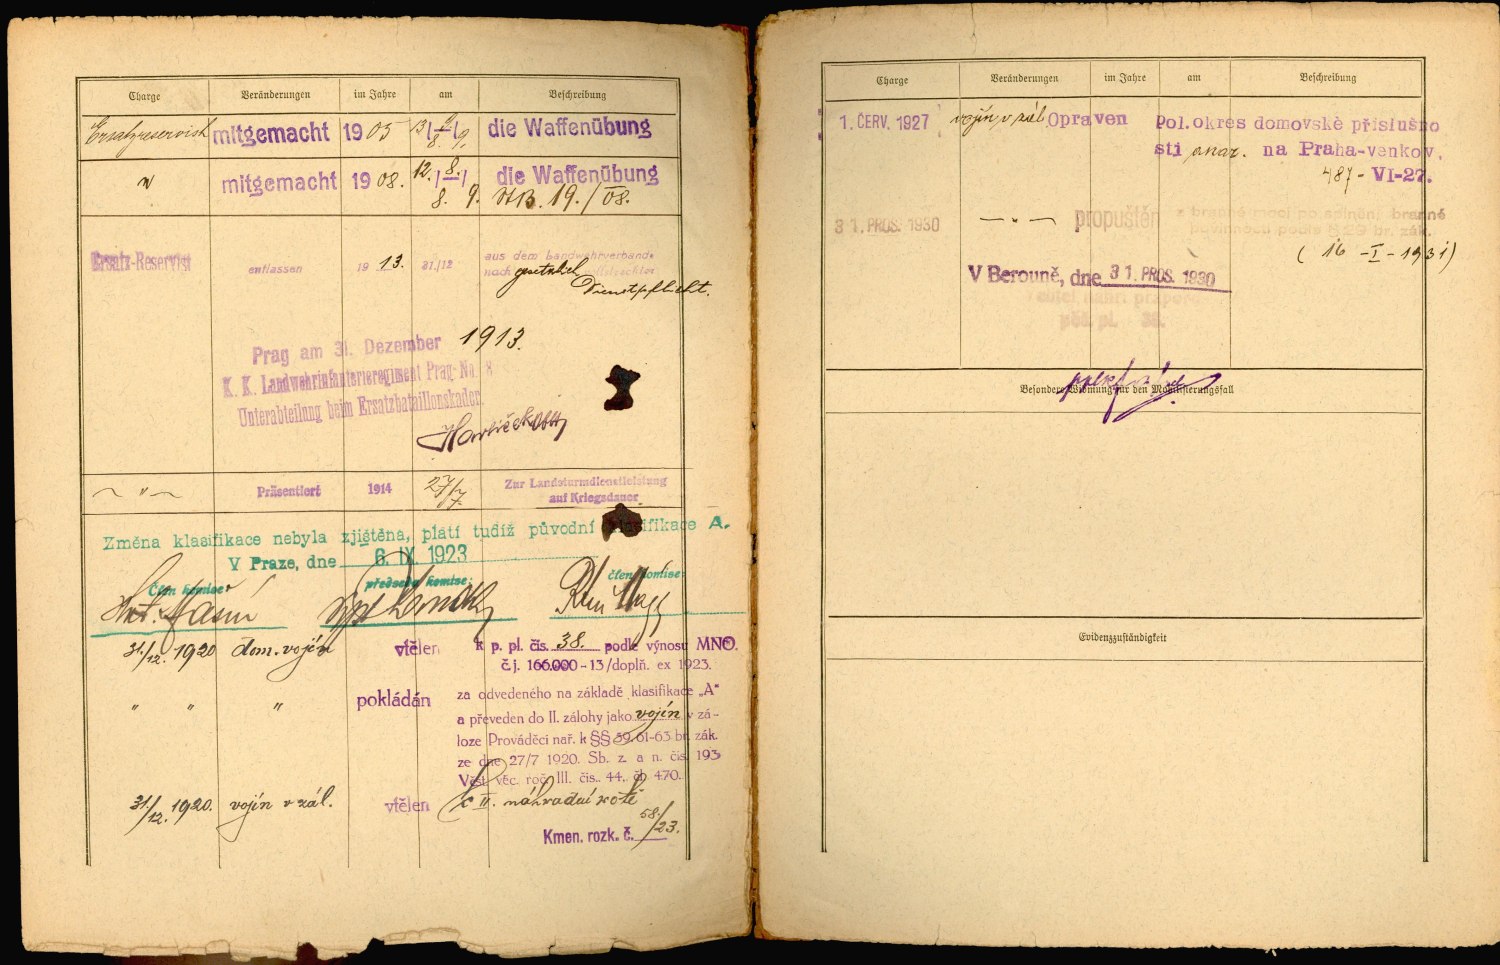 Charge Veränderungen im Jahre am Beschreibung
Ersatzreservist mitgemacht 1905 die Waffenübung
" mitgemacht 1908. 12./8. 8./9. die Waffenübung
19./08.
Ersatz-Reservist entlassen 1913. 31./12 aus dem Landwehrverbande
nach gesetzlich vollstreckter
Dienstpflicht.
Prag am 31. Dezember 1913.
K. K. Landwehrinfanterieregiment Prag No 8
Unterabteilung beim Ersatzbataillonskader
— " — Präsentiert 1914 27/7. Zur Landsturmdienstleistung
auf Kriegsdauer
Změna klasifikace nebyla zjištěna, platí tudíž původní klasifikace A.
V Praze, dne 6. IX. 1923
Člen komise: předseda komise: člen komise:
31./12. 1920 dom. vojín vtělen k p. pl. čís. 38. podle výnosu MNO.
č.j. 166.000-13/doplň. ex 1923.
" " " pokládán za odvedeného na základě klasifikace „A“
a převeden do II. zálohy jako vojín v zá-
loze Prováděcí nař. k §§ 59, 61-63 br. zák.
ze dne 27/7 1920. Sb. z. a n. čís. 193
Věst. věc. roč. III. čís. 44. čl. 470.
31./12. 1920. vojín v zál. vtělen k II. náhradní rotě
Kmen. rozk. č. 58./23.
Charge Veränderungen im Jahre am Beschreibung
1. ČERV. 1927 vojín v zál. Opraven Pol. okres domovské příslušno
sti na Praha-venkov.
487-VI-27.
31. PROS. 1930 — " — propuštěn z branné moci po splnění branné
povinnosti podle § 29 br. zák.
(16-I-1931)
V Berouně, dne 31. PROS. 1930
pěš. pl. 38.
Besondere Widmung für den Mobilisierungsfall
Evidenzzuständigkeit